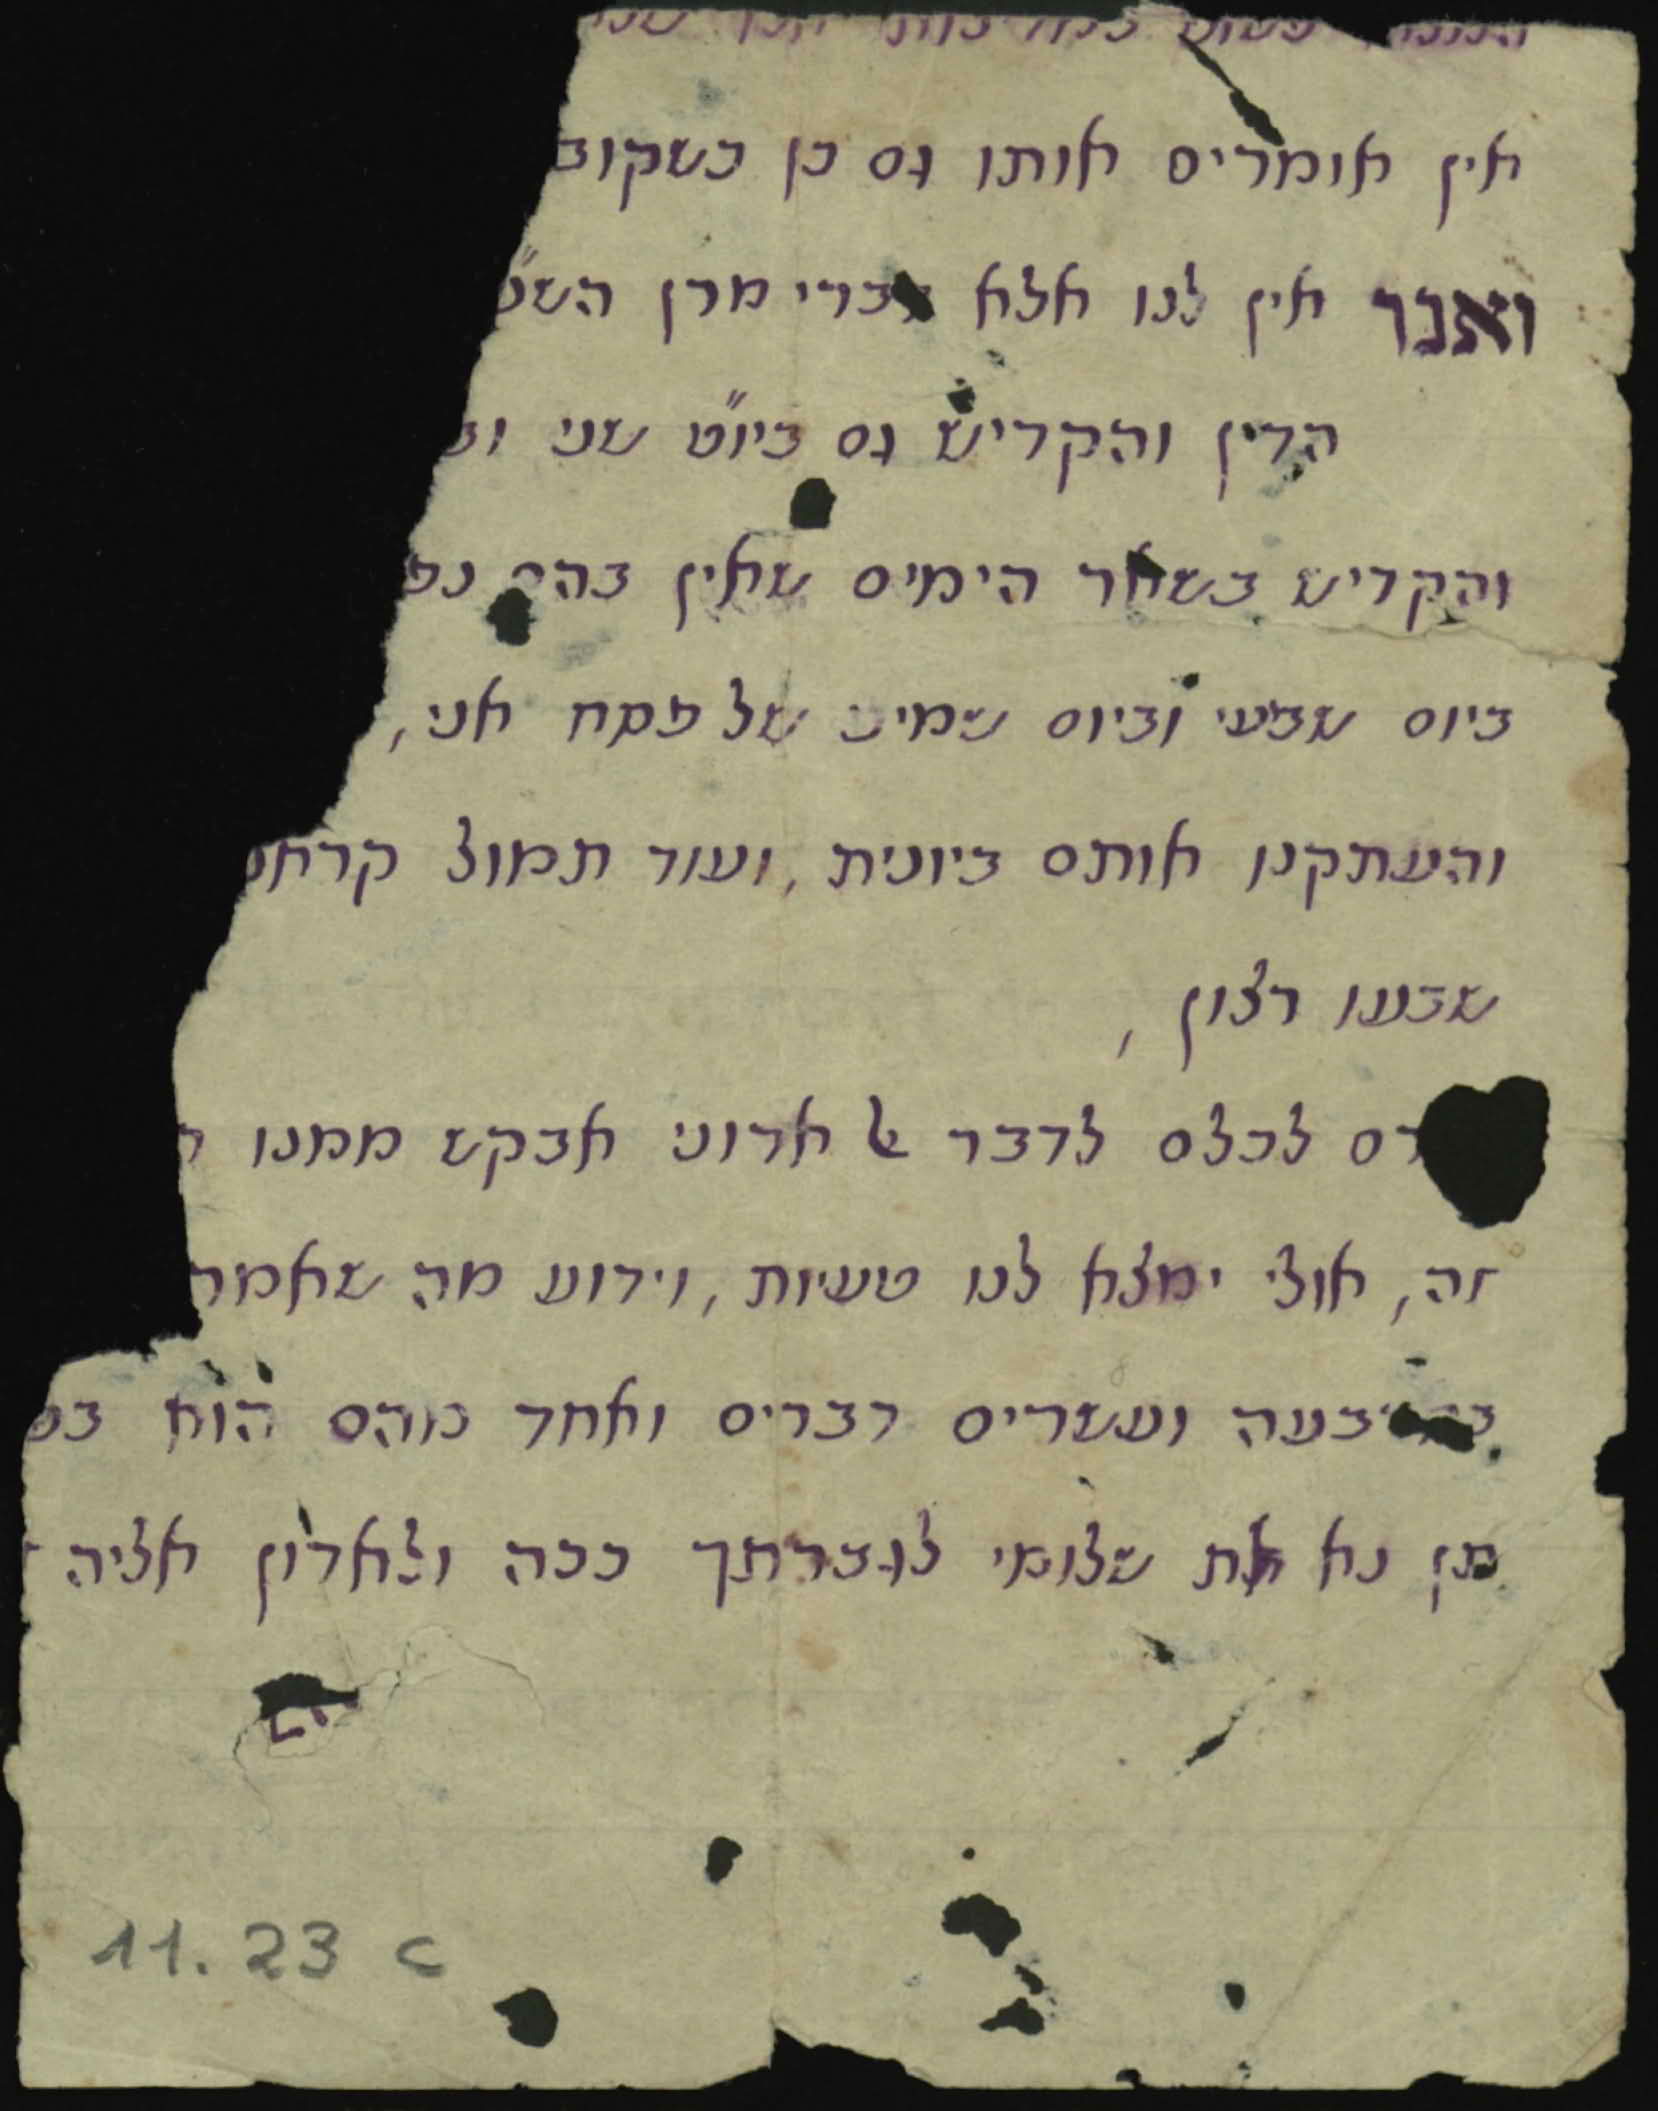 אין אומרים אותו גם כן כשקוב
ואנך אין לנו אלא דברי מרן הש״
הדין והקדיש גם ביו״ט שני וב
והקדיש בשאר הימים שאין בהם נפ
ביום שביעי וביום שמיני של פסח אני,
והעתקנו אותם ביונית, ועוד תמול קרא
שבענו רצון,
לכלם לדבר אדוני אבקש ממנו
זה, אולי ימצא לנו טעיות, וידוע מה שאמר
ועשרים דברים ואחד מהם הוא
תן נא את שלומי לגברתך ככה ולאדון אליה
11. 23 c